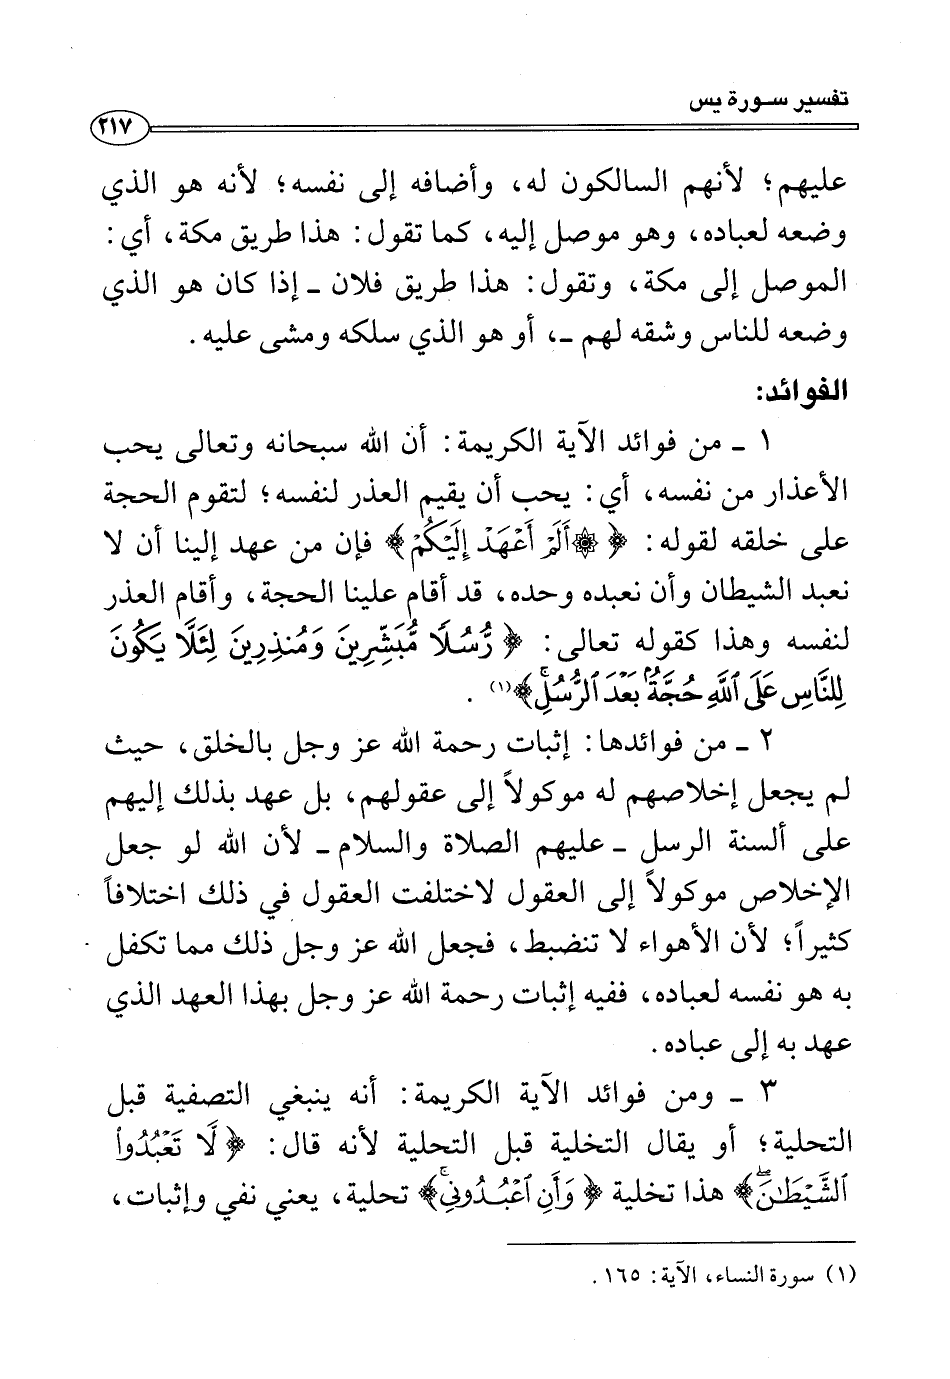 تفسير سورة يس
٢١٧
عليهم؛ لأنهم السالكون له، وأضافه إلى نفسه؛ لأنه هو الذي
وضعه لعباده، وهو موصل إليه، كما تقول: هذا طريق مكة، أي:
الموصل إلى مكة، وتقول: هذا طريق فلان ـ إذا كان هو الذي
وضعه للناس وشقه لهم ـ، أو هو الذي سلكه ومشى عليه.
الفوائد:
١ ـ من فوائد الآية الكريمة: أن الله سبحانه وتعالى يحب
الأعذار من نفسه، أي: يحب أن يقيم العذر لنفسه؛ لتقوم الحجة
على خلقه لقوله: ﴿ ۞ أَلَمْ أَعْهَدْ إِلَيْكُمْ ﴾ فإن من عهد إلينا أن لا
نعبد الشيطان وأن نعبده وحده، قد أقام علينا الحجة، وأقام العذر
لنفسه وهذا كقوله تعالى: ﴿ رُّسُلًا مُّبَشِّرِينَ وَمُنذِرِينَ لِئَلَّا يَكُونَ
لِلنَّاسِ عَلَى ٱللَّهِ حُجَّةٌۢ بَعْدَ ٱلرُّسُلِۚ ﴾(١).
٢ ـ من فوائدها: إثبات رحمة الله عز وجل بالخلق، حيث
لم يجعل إخلاصهم له موكولاً إلى عقولهم، بل عهد بذلك إليهم
على ألسنة الرسل ـ عليهم الصلاة والسلام ـ لأن الله لو جعل
الإخلاص موكولاً إلى العقول لاختلفت العقول في ذلك اختلافاً
كثيراً؛ لأن الأهواء لا تنضبط، فجعل الله عز وجل ذلك مما تكفل
به هو نفسه لعباده، ففيه إثبات رحمة الله عز وجل بهذا العهد الذي
عهد به إلى عباده.
٣ ـ ومن فوائد الآية الكريمة: أنه ينبغي التصفية قبل
التحلية؛ أو يقال التخلية قبل التحلية لأنه قال: ﴿ لَّا تَعْبُدُوا۟
ٱلشَّيْطَٰنَۖ ﴾ هذا تخلية ﴿ وَأَنِ ٱعْبُدُونِىۚ ﴾ تحلية، يعني نفي وإثبات،
(١) سورة النساء، الآية: ١٦٥.